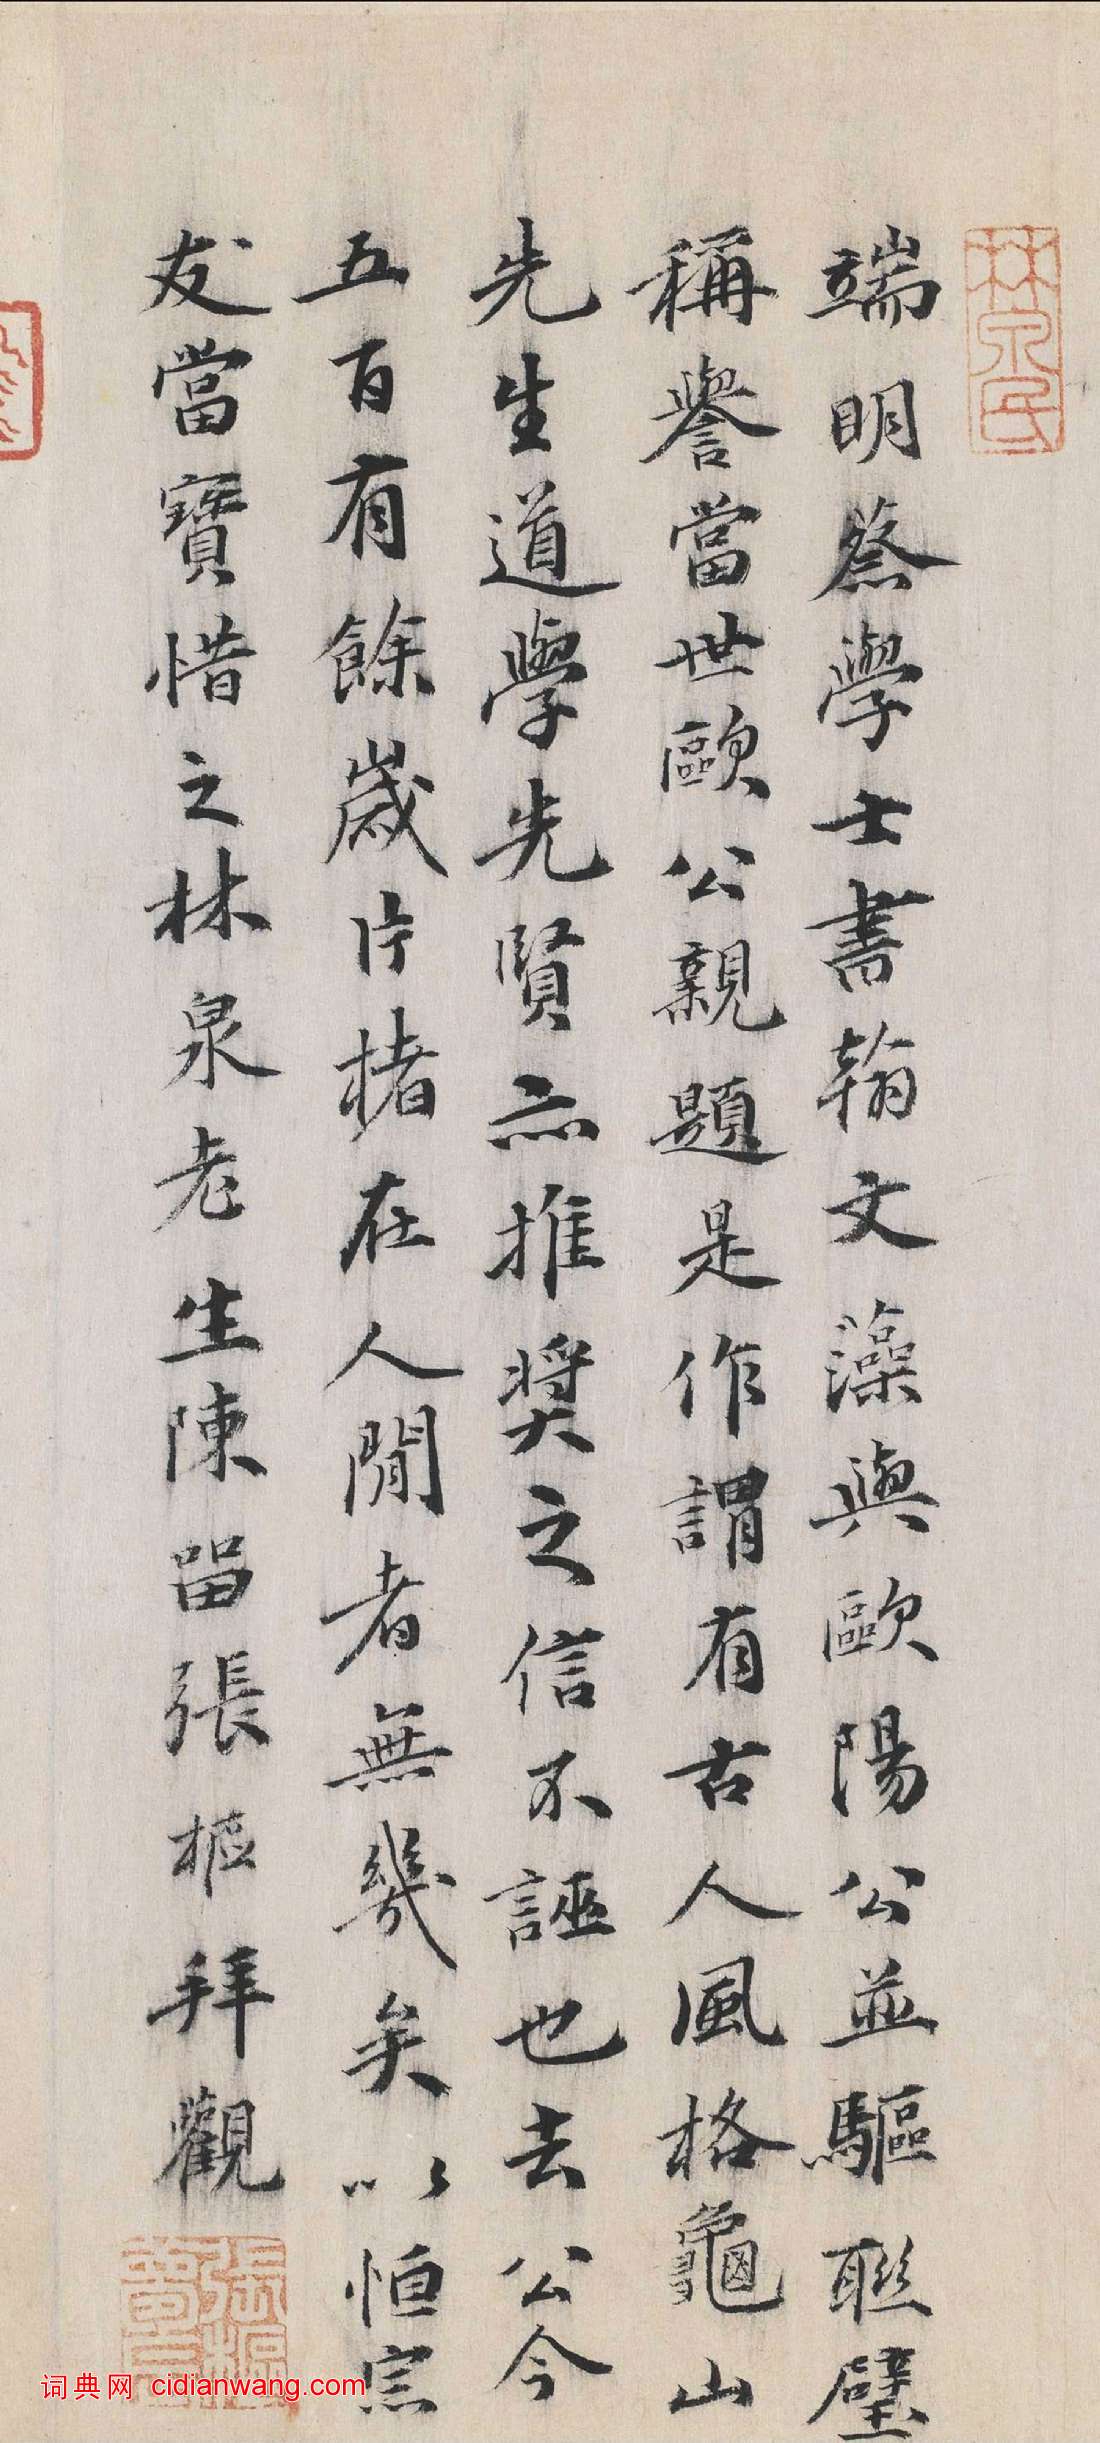 林泉民
端明蔡學士書翰文藻與歐陽公並驅聯璧
稱譽當世歐公親題是作謂有古人風格龜山
先生道學先賢亦推奬之信不誣也去公今
五百有餘歲片楮在人間者無幾矣以恒宗
友當寶惜之林泉老生陳留張樞拜觀
词典网 cidianwang.com